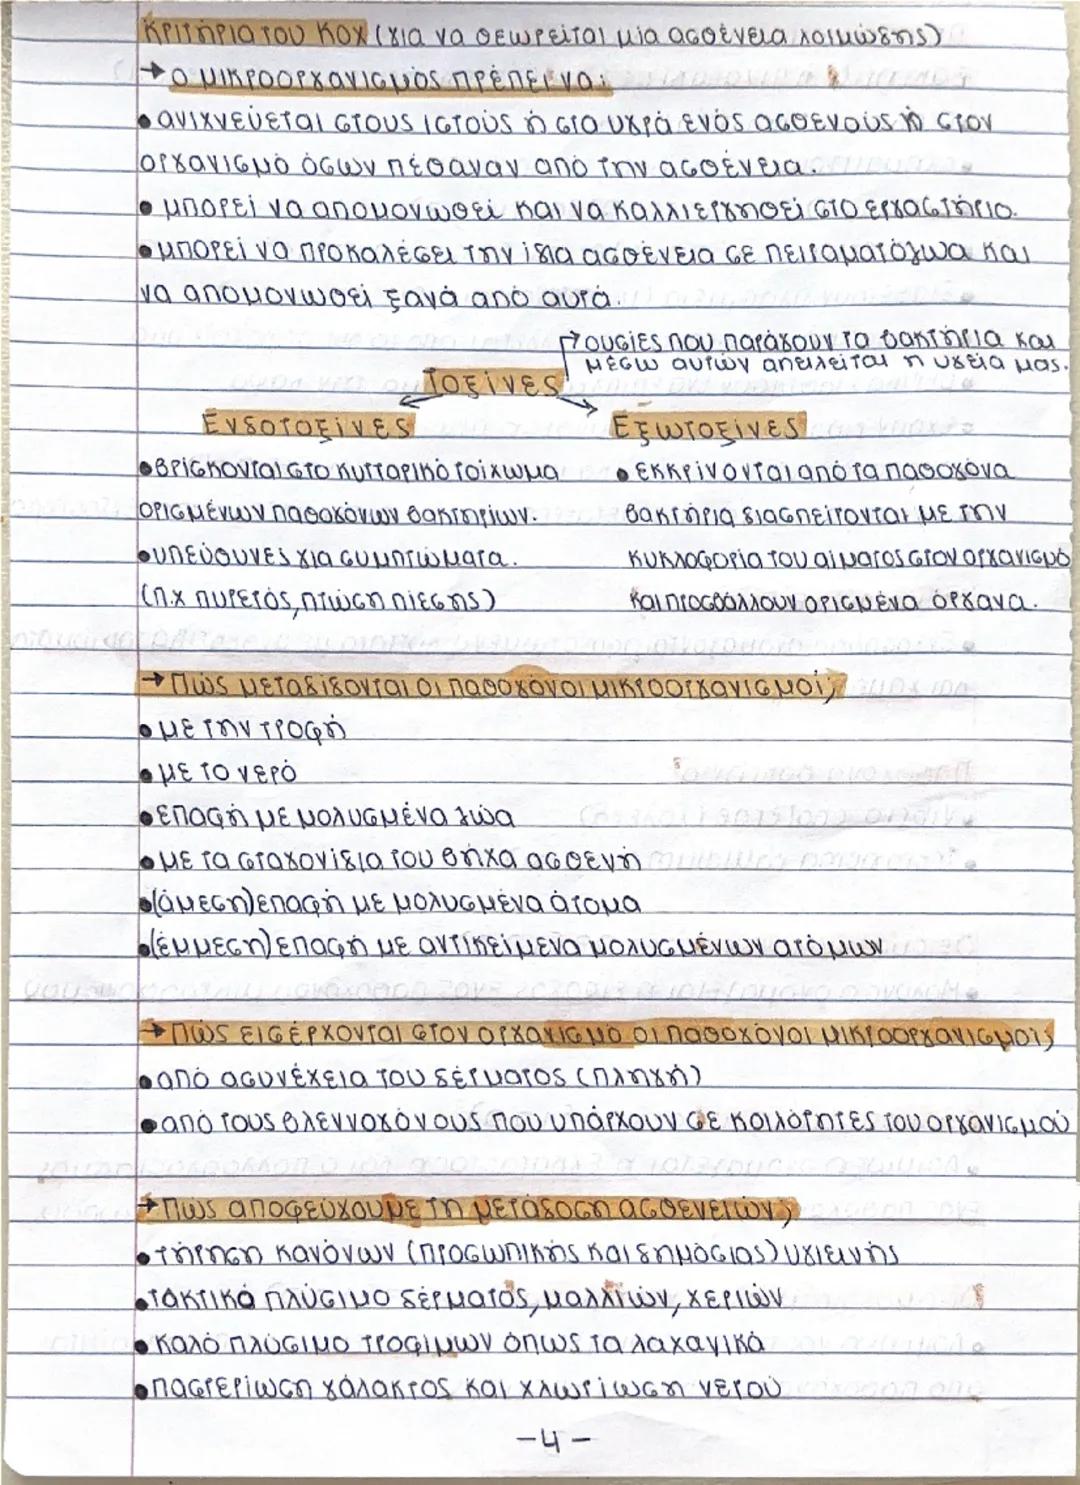 Κριτήρια του Κοχ (για να θεωρείται μία ασθένεια λοιμώδης)
→ Ο μικροοργανισμός πρέπει να:
• ανιχνεύεται στους ιστούς ή στα υγρά ενός ασθενούς ή στον
οργανισμό όσων πέθαναν από την ασθένεια.
• μπορεί να απομονωθεί και να καλλιεργηθεί στο εργαστήριο.
• μπορεί να προκαλέσει την ίδια ασθένεια σε πειραματόζωα και
να απομονωθεί ξανά από αυτά.
→ ουσίες που παράγουν τα βακτήρια και
μέσω αυτών απειλείται η υγεία μας.
Τοξίνες
Ενδοτοξίνες Εξωτοξίνες
• βρίσκονται στο κυτταρικό τοίχωμα • εκκρίνονται από τα παθογόνα
ορισμένων παθογόνων βακτηρίων. βακτήρια διασπείρονται με την
• υπεύθυνες για συμπτώματα. κυκλοφορία του αίματος στον οργανισμό
(π.χ πυρετός, πτώση πίεσης) και προσβάλλουν ορισμένα όργανα.
→ Πώς μεταδίδονται οι παθογόνοι μικροοργανισμοί;
• με την τροφή
• με το νερό
• επαφή με μολυσμένα ζώα
• με τα σταγονίδια του βήχα ασθενή
• (άμεση) επαφή με μολυσμένα άτομα
• (έμμεση) επαφή με αντικείμενα μολυσμένων ατόμων
→ Πώς εισέρχονται στον οργανισμό οι παθογόνοι μικροοργανισμοί;
• από ασυνέχεια του δέρματος (πληγή)
• από τους βλεννογόνους που υπάρχουν σε κοιλότητες του οργανισμού
→ Πώς αποφεύγουμε τη μετάδοση ασθενειών;
• τήρηση κανόνων (προσωπικής και δημόσιας) υγιεινής
• τακτικό πλύσιμο δέρματος, μαλλιών, χεριών
• καλό πλύσιμο τροφίμων όπως τα λαχανικά
• παστερίωση γάλακτος και χλωρίωση νερού
-4-